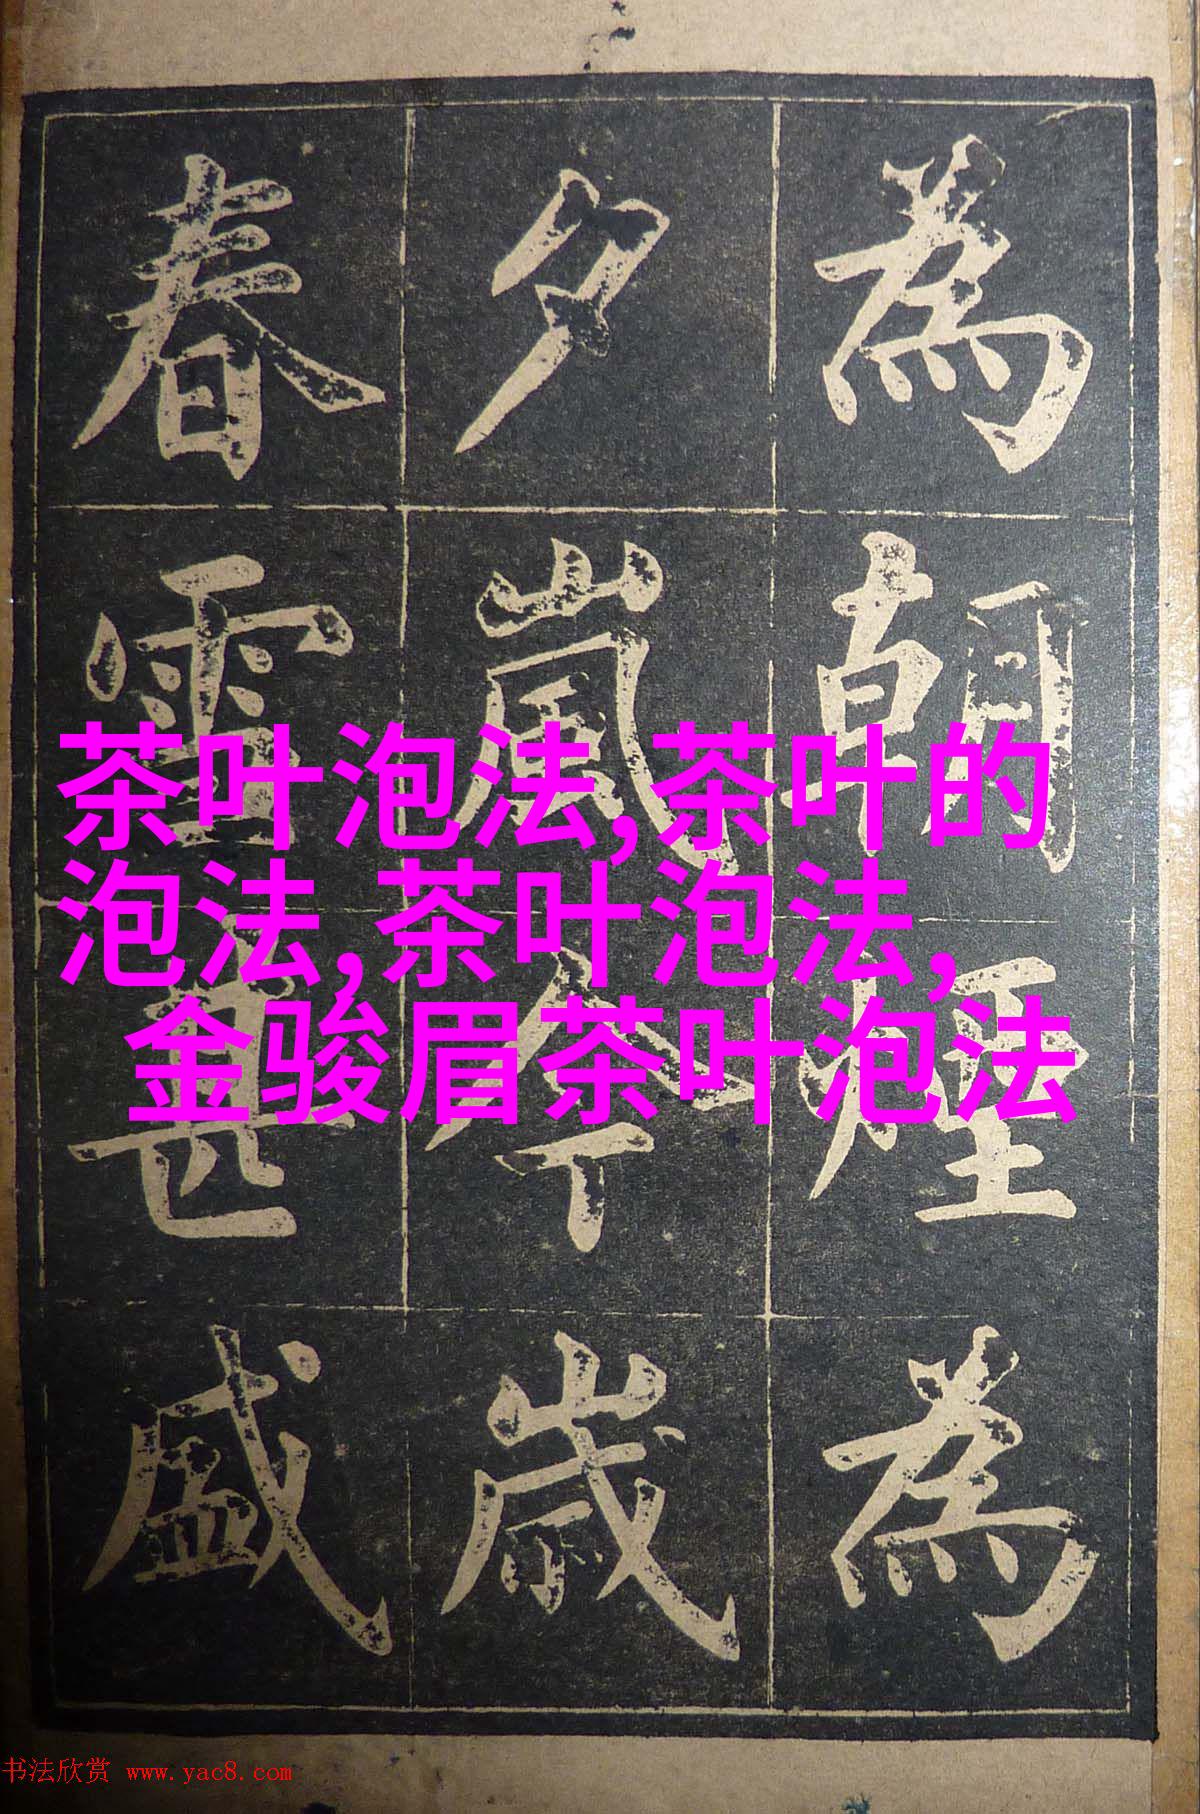 為朝煙為
夕嵐今歲
春雪甚盛
茶叶泡法,茶叶的
泡法,茶叶泡法,
金骏眉茶叶泡法
书法欣赏 www.yac8.com